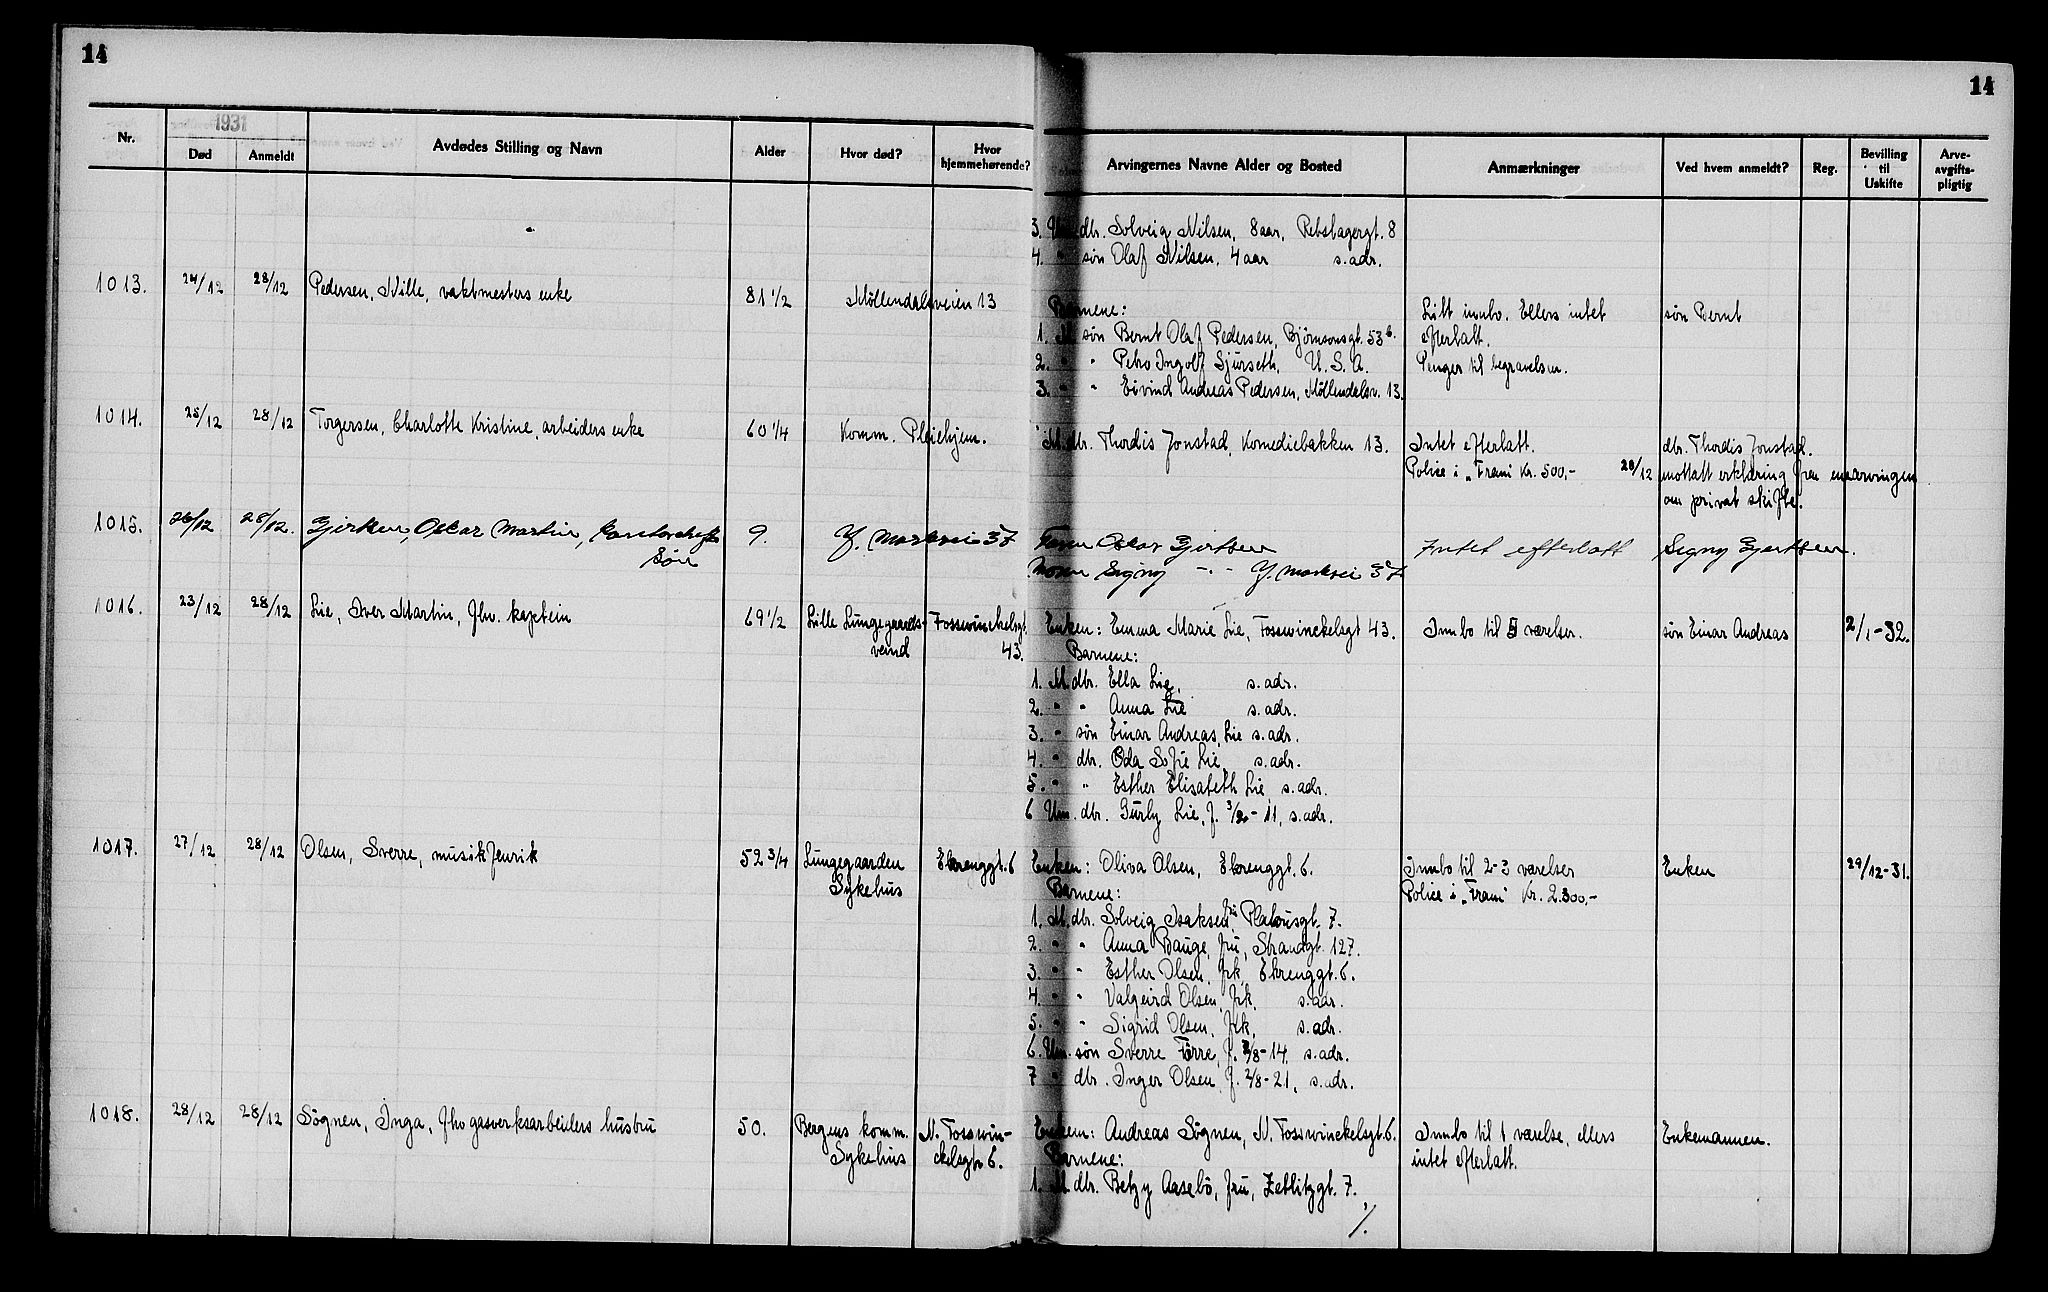 14
14
Nr.
1931
Død
Anmeldt
Avdødes Stilling og Navn
Alder
Hvor død?
Hvor hjemmehørende?
Arvingernes Navne Alder og Bosted
Anmærkninger
Ved hvem anmeldt?
Reg.
Bevilling til Uskifte
Arve-avgifts-pligtig
3. Um. dbr. Solveig Nilsen, 8 aar, Rebslagergt. 8
4. " søn Olaf Nilsen, 4 aar s. adr.
1013. 24/12 28/12 Pedersen, Nille, vaktmesters enke 81 1/2 Møllendalsveien 13
Barnene: Litt innbo. Ellers intet søn Bernt
1. M søn Bernt Olaf Pedersen, Bjørnsonsgt. 53 b. efterlatt.
2. " " Petro Ingolf Sjurseth, U. S. A. Penger til begravelsen.
3. " " Eivind Andreas Pedersen, Møllendalsv. 13.
1014. 25/12 28/12 Torgersen, Charlotte Kristine, arbeiders enke 60 1/4 Komm. Pleiehjem. M. dbr. Thordis Jonstad, Komediebakken 13. Intet efterlatt. dbr. Thordis Jonstad.
Police i „Fram" Kr. 500,- 28/12 mottatt erklæring fra enearvingen
om privat skifte.
1015. 26/12 28/12. Oscar Martin, søn 9. Y. Markvei 37 Faren Oscar Gjertsen Intet efterlatt Signy Gjertsen.
Moren Signy -"- Y. Markvei 37
1016. 23/12 28/12 Lie, Iver Martin, fhv. kaptein 69 1/2 Lille Lungegaards- Fosswinckelsgt. Enken: Emma Marie Lie, Fosswinckelsgt 43. Innbo til 5 værelser. søn Einar Andreas 2/1-32.
veind 43. Barnene:
1. M dbr. Ella Lie, s. adr.
2. " " Anna Lie s. adr.
3. " søn Einar Andreas Lie s. adr.
4. " dbr. Oda Sofie Lie, s. adr.
5. " " Esther Elisabeth Lie s. adr.
6 Um. dbr. Gurly Lie, f. 3/2-11, s. adr.
1017. 27/12 28/12 Olsen, Sverre, musikfenrik 52 3/4 Lungegaarden Ekrenggt. 6 Enken: Oliva Olsen, Ekrenggt. 6. Innbo til 2-3 værelser Enken 29/12-31.
Sykehus Barnene: Police i „Fram" Kr. 2.300,-
1. M. dbr. Solveig Isaksen, fru Platousgt. 7.
2. " " Anna Bauge, fru, Strandgt. 127.
3. " " Esther Olsen, frk, Ekrenggt. 6.
4. " " Valgeird Olsen, frk, s. adr.
5. " " Sigrid Olsen, frk, s. adr.
6. Um. søn Sverre Tørre, f. /8-14, s. adr.
7 " dbr. Inger Olsen, f. 2/8-21, s. adr.
1018. 28/12 28/12 Søgnen, Inga, fhv gasverksarbeiders hustru 50. Bergens komm. N. Fosswin- Enkem: Andreas Søgnen, N. Fosswinckelsgt. 6. Innbo til 1 værelse, ellers Enkemannen.
Sykehus ckelsgt 6. Barnene: intet efterlatt.
1. M dbr. Betzy Aasebø, fru, Zetlitzgt. 7.
%